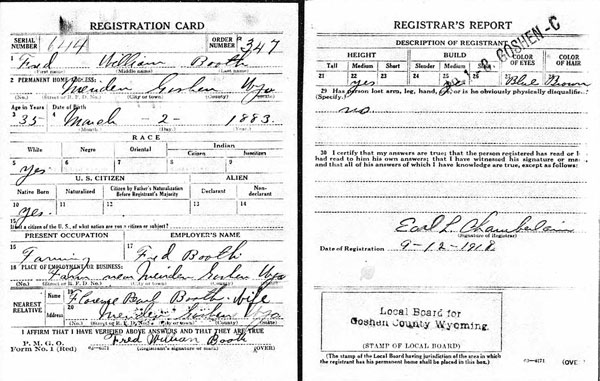 REGISTRATION CARD
SERIAL NUMBER 1414 ORDER NUMBER 347
1 Fred William Booth
(First name) (Middle name) (Last name)
2 PERMANENT HOME ADDRESS:
Meriden Goshen Wyo
(No.) (Street or R. F. D. No.) (City or town) (County) (State)
Age in Years Date of Birth
3 35 4 March - 2 - 1883
(Month.) (Day.) (Year.)
RACE
White Negro Oriental Indian
Citizen Noncitizen
5 yes 6 7 8 9
U. S. CITIZEN ALIEN
Native Born Naturalized Citizen by Father's Naturalization Before Registrant's Majority Declarant Non-declarant
10 yes. 11 12 13 14
15 If not a citizen of the U. S., of what nation are you a citizen or subject?
PRESENT OCCUPATION EMPLOYER'S NAME
16 Farming 17 Fred Booth
18 PLACE OF EMPLOYMENT OR BUSINESS:
Farm near Meriden Goshen Wyo
(No.) (Street or R. F. D. No.) (City or town) (County) (State)
NEAREST RELATIVE
Name 19 Florence Booth, wife
Address 20 Meriden Goshen Wyo
(No.) (Street or R. F. D. No.) (City or town) (County) (State)
I AFFIRM THAT I HAVE VERIFIED ABOVE ANSWERS AND THAT THEY ARE TRUE
P. M. G. O.
Form No. 1 (Red) Fred William Booth
(Registrant's signature or mark) (OVER)
REGISTRAR'S REPORT
GOSHEN-C
DESCRIPTION OF REGISTRANT
HEIGHT BUILD COLOR OF EYES COLOR OF HAIR
Tall Medium Short Slender Medium Stout
21 22 yes 23 24 25 yes 26 27 Blue 28 Brown
29 Has person lost arm, leg, hand, or is he obviously physically disqualified?
(Specify.)
no.
30 I certify that my answers are true; that the person registered has read or
had read to him his own answers; that I have witnessed his signature or
and that all of his answers of which I have knowledge are true, except as follows:
Earl L. Chamberlain
(Signature of Registrar)
Date of Registration 9-12-1918
Local Board for
Goshen County Wyoming.
(STAMP OF LOCAL BOARD)
(The stamp of the Local Board having jurisdiction of the area in which
the registrant has his permanent home shall be placed in this box.) 03-6171 (OVE